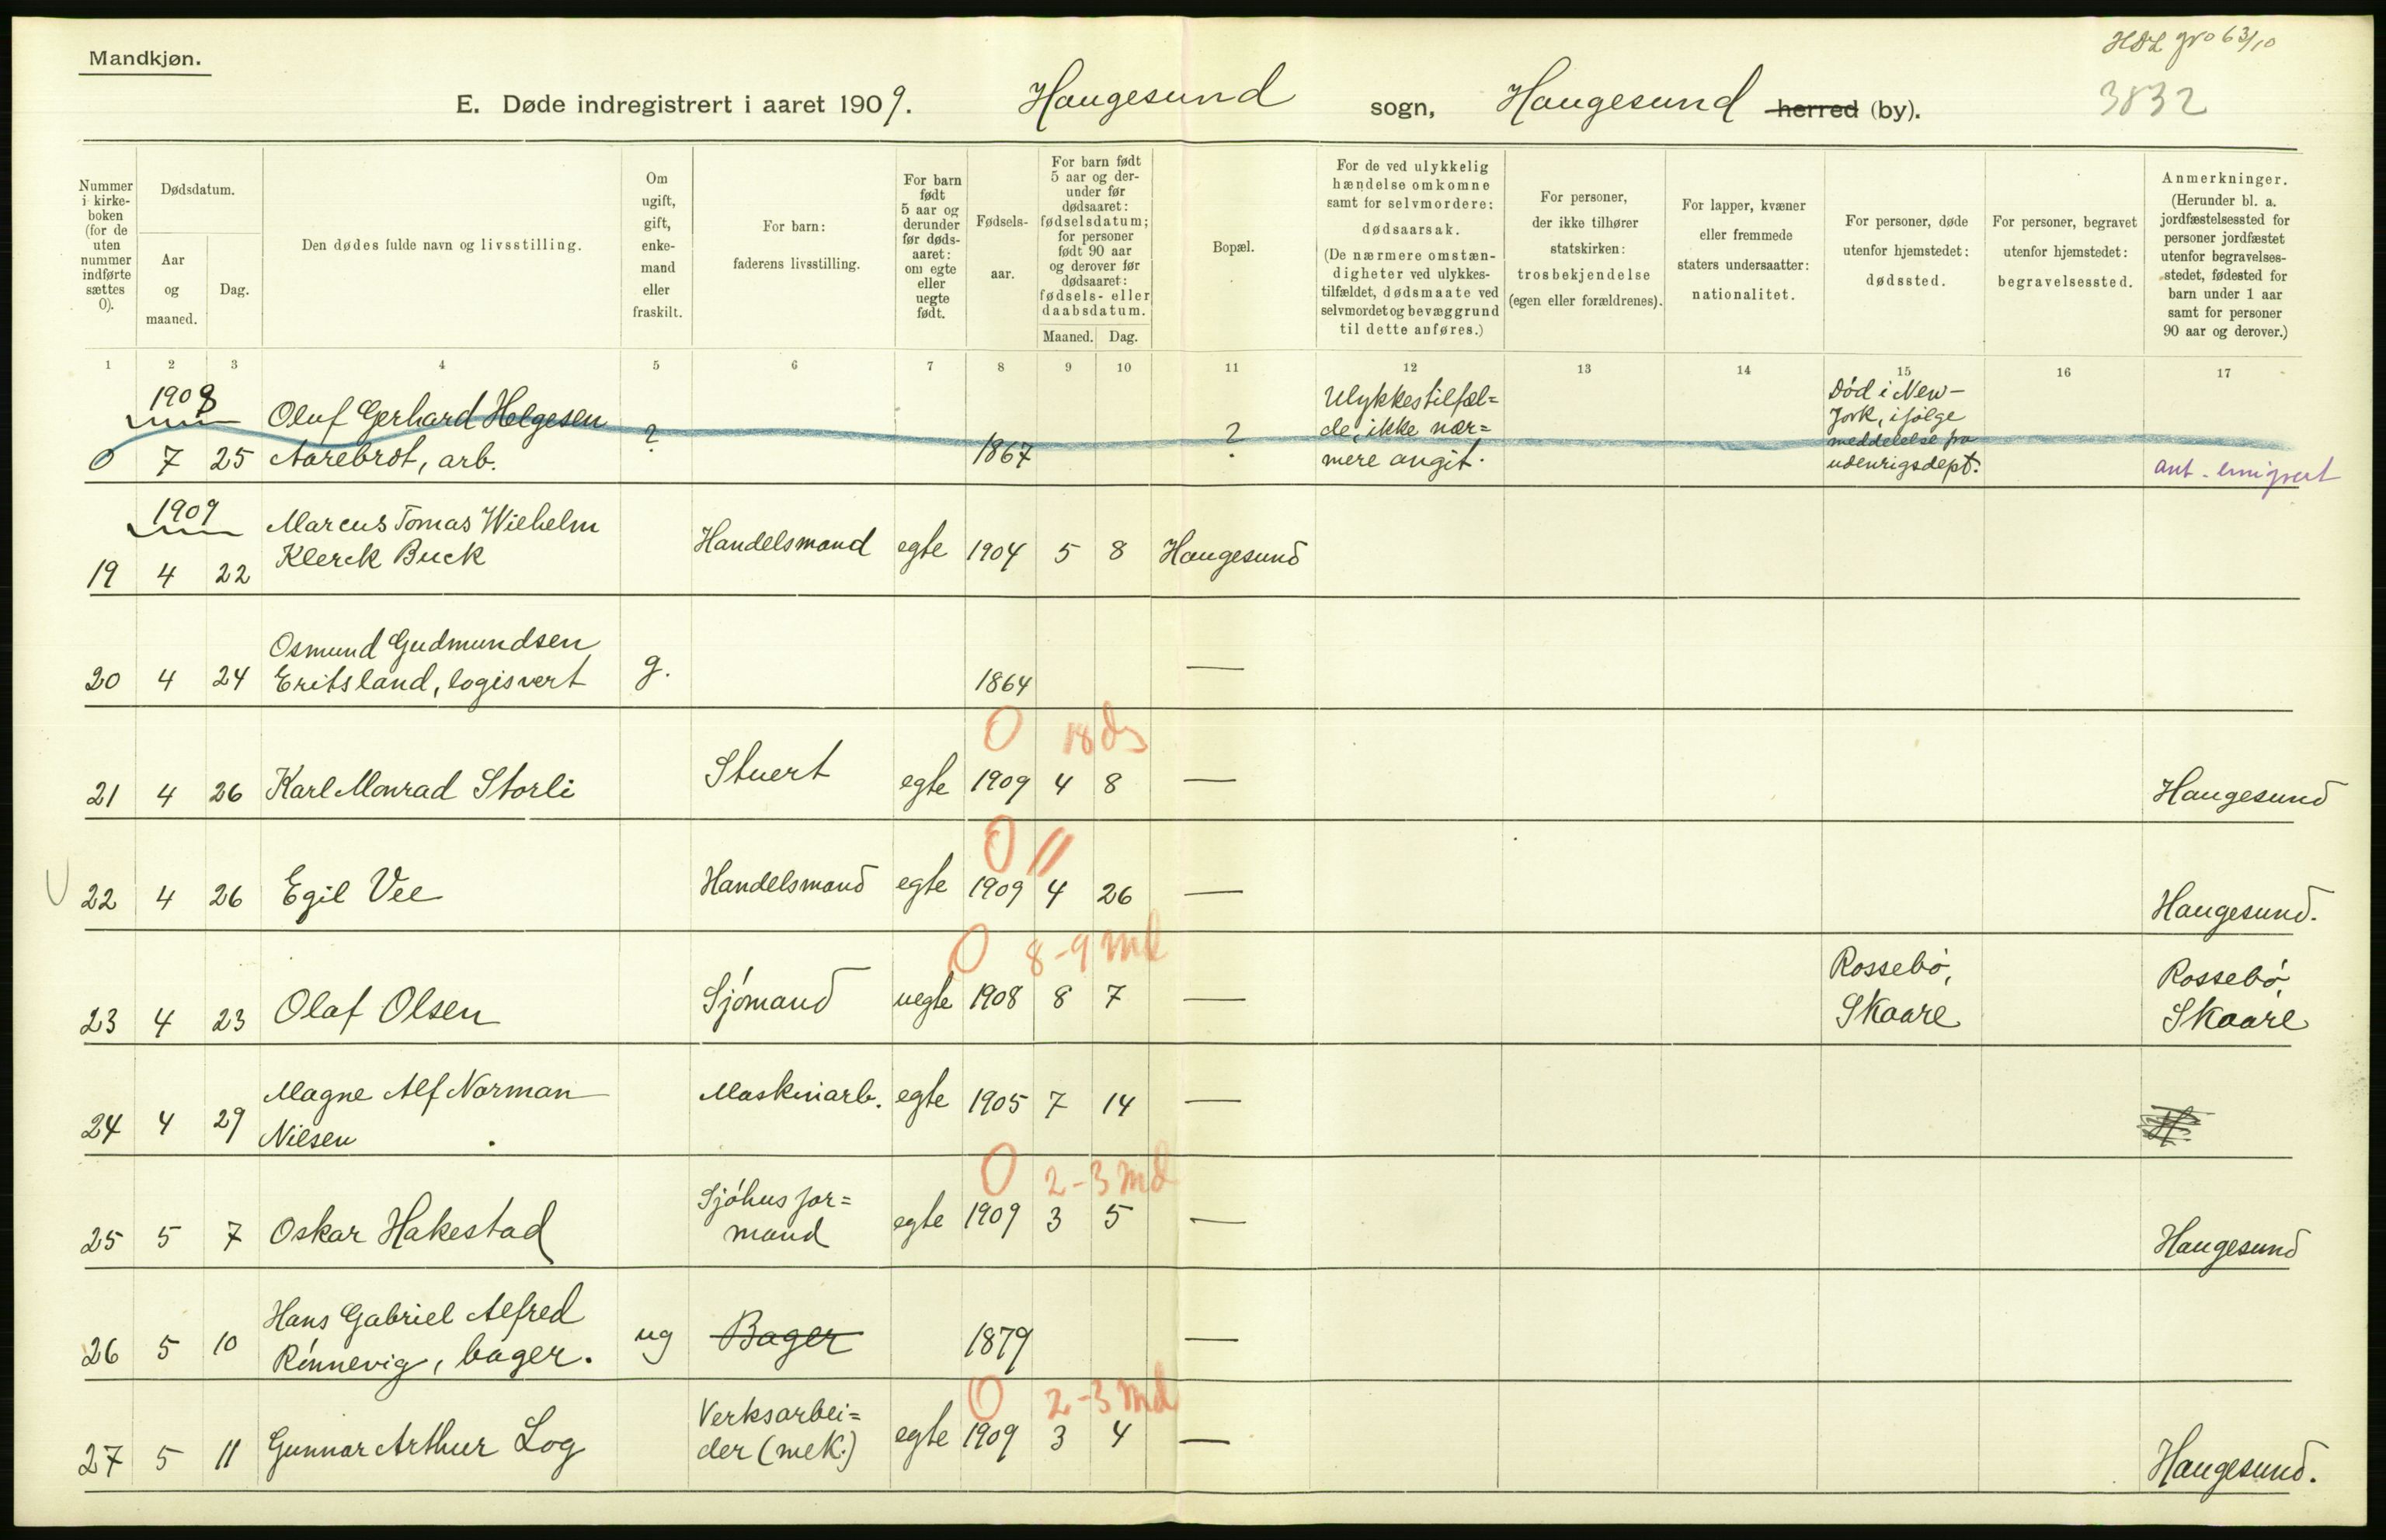 Mandkjøn.
E. Døde indregistrert i aaret 1909. Haugesund sogn, Haugesund herred (by).
3832
Nummer i kirke-boken (for de uten nummer indførte sættes 0).
Dødsdatum.
Aar og maaned.
Dag.
Den dødes fulde navn og livsstilling.
Om ugift, gift, enke-mand eller fraskilt.
For barn: faderens livsstilling.
For barn født 5 aar og derunder før døds-aaret: om egte eller uegte født.
Fødsels-aar.
For barn født 5 aar og der-under før dødsaaret: fødselsdatum; for personer født 90 aar og derover før dødsaaret: fødsels- eller daabsdatum.
Maaned. Dag.
Bopæl.
For de ved ulykkelig hændelse omkomne samt for selvmordere: dødsaarsak. (De nærmere omstæn-digheter ved ulykkes-tilfældet, dødsmaate ved selvmordet og bevæggrund til dette anføres.)
For personer, der ikke tilhører statskirken: trosbekjendelse (egen eller forældrenes).
For lapper, kvæner eller fremmede staters undersaatter: nationalitet.
For personer, døde utenfor hjemstedet: dødssted.
For personer, begravet utenfor hjemstedet: begravelsessted.
Anmerkninger. (Herunder bl. a. jordfæstelsessted for personer jordfæstet utenfor begravelses-stedet, fødested for barn under 1 aar samt for personer 90 aar og derover.)
1 2 3 4 5 6 7 8 9 10 11 12 13 14 15 16 17
1908
Oluf Gerhard Helgesen
0 7 25 Aarebrot, arb. ? 1867 ?
Ulykkestilfæl=
de, ikke nær=
mere angit.
Død i New-
Jork, ifølge
meddelelse fra
udenrigsdept.
ant. emigrert
1909
Marcus Tomas Wilhelm
19 4 22 Klerck Buck Handelsmand egte 1904 5 8 Haugesund
Osmund Gudmundsen
20 4 24 Eritsland, logisvert g. 1864 —
0 18 ds
21 4 26 Karl Monrad Storli Stuert egte 1909 4 8 — Haugesund
0 11
22 4 26 Egil Vee Handelsmand egte 1909 4 26 — Haugesund.
0 8-9 md
23 4 23 Olaf Olsen Sjómand uegte 1908 8 7 — Rossebó, Skaare Rossebó, Skaare
Magne Alf Norman
24 4 29 Nilsen Maskinarb. egte 1905 7 14 —
0 2-3 md
25 5 7 Oskar Hakestad Sjóhusfor=
mand egte 1909 3 5 — Haugesund
Hans Gabriel Alfred
26 5 10 Rónnevig, bager. ug Bager 1879 —
0 2-3 md
27 5 11 Gunnar Arthur Log Verksarbei=
der (mek.) egte 1909 3 4 — Haugesund.